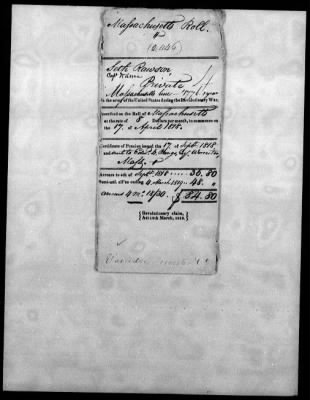 Massachusetts Roll.
10,446
Seth Rawson
Capt Warren
Private
Massachusetts line 1776 1 year
in the army of the United States during the Revolutionary War,
Inscribed on the Roll of Massachusetts
at the rate of 8 Dollars per month, to commence on
the 17. of April 1818.
Certificate of Pension issued the 17. of Sept. 1818
and sent to
Mass.
Arrears to 4th of Sept. 1818 36.80
Semi-anl. all'ce ending 4 March 1819 48. "
4 mo. 18/30. $84.80
Revolutionary claim,
Act 18th March, 1818.